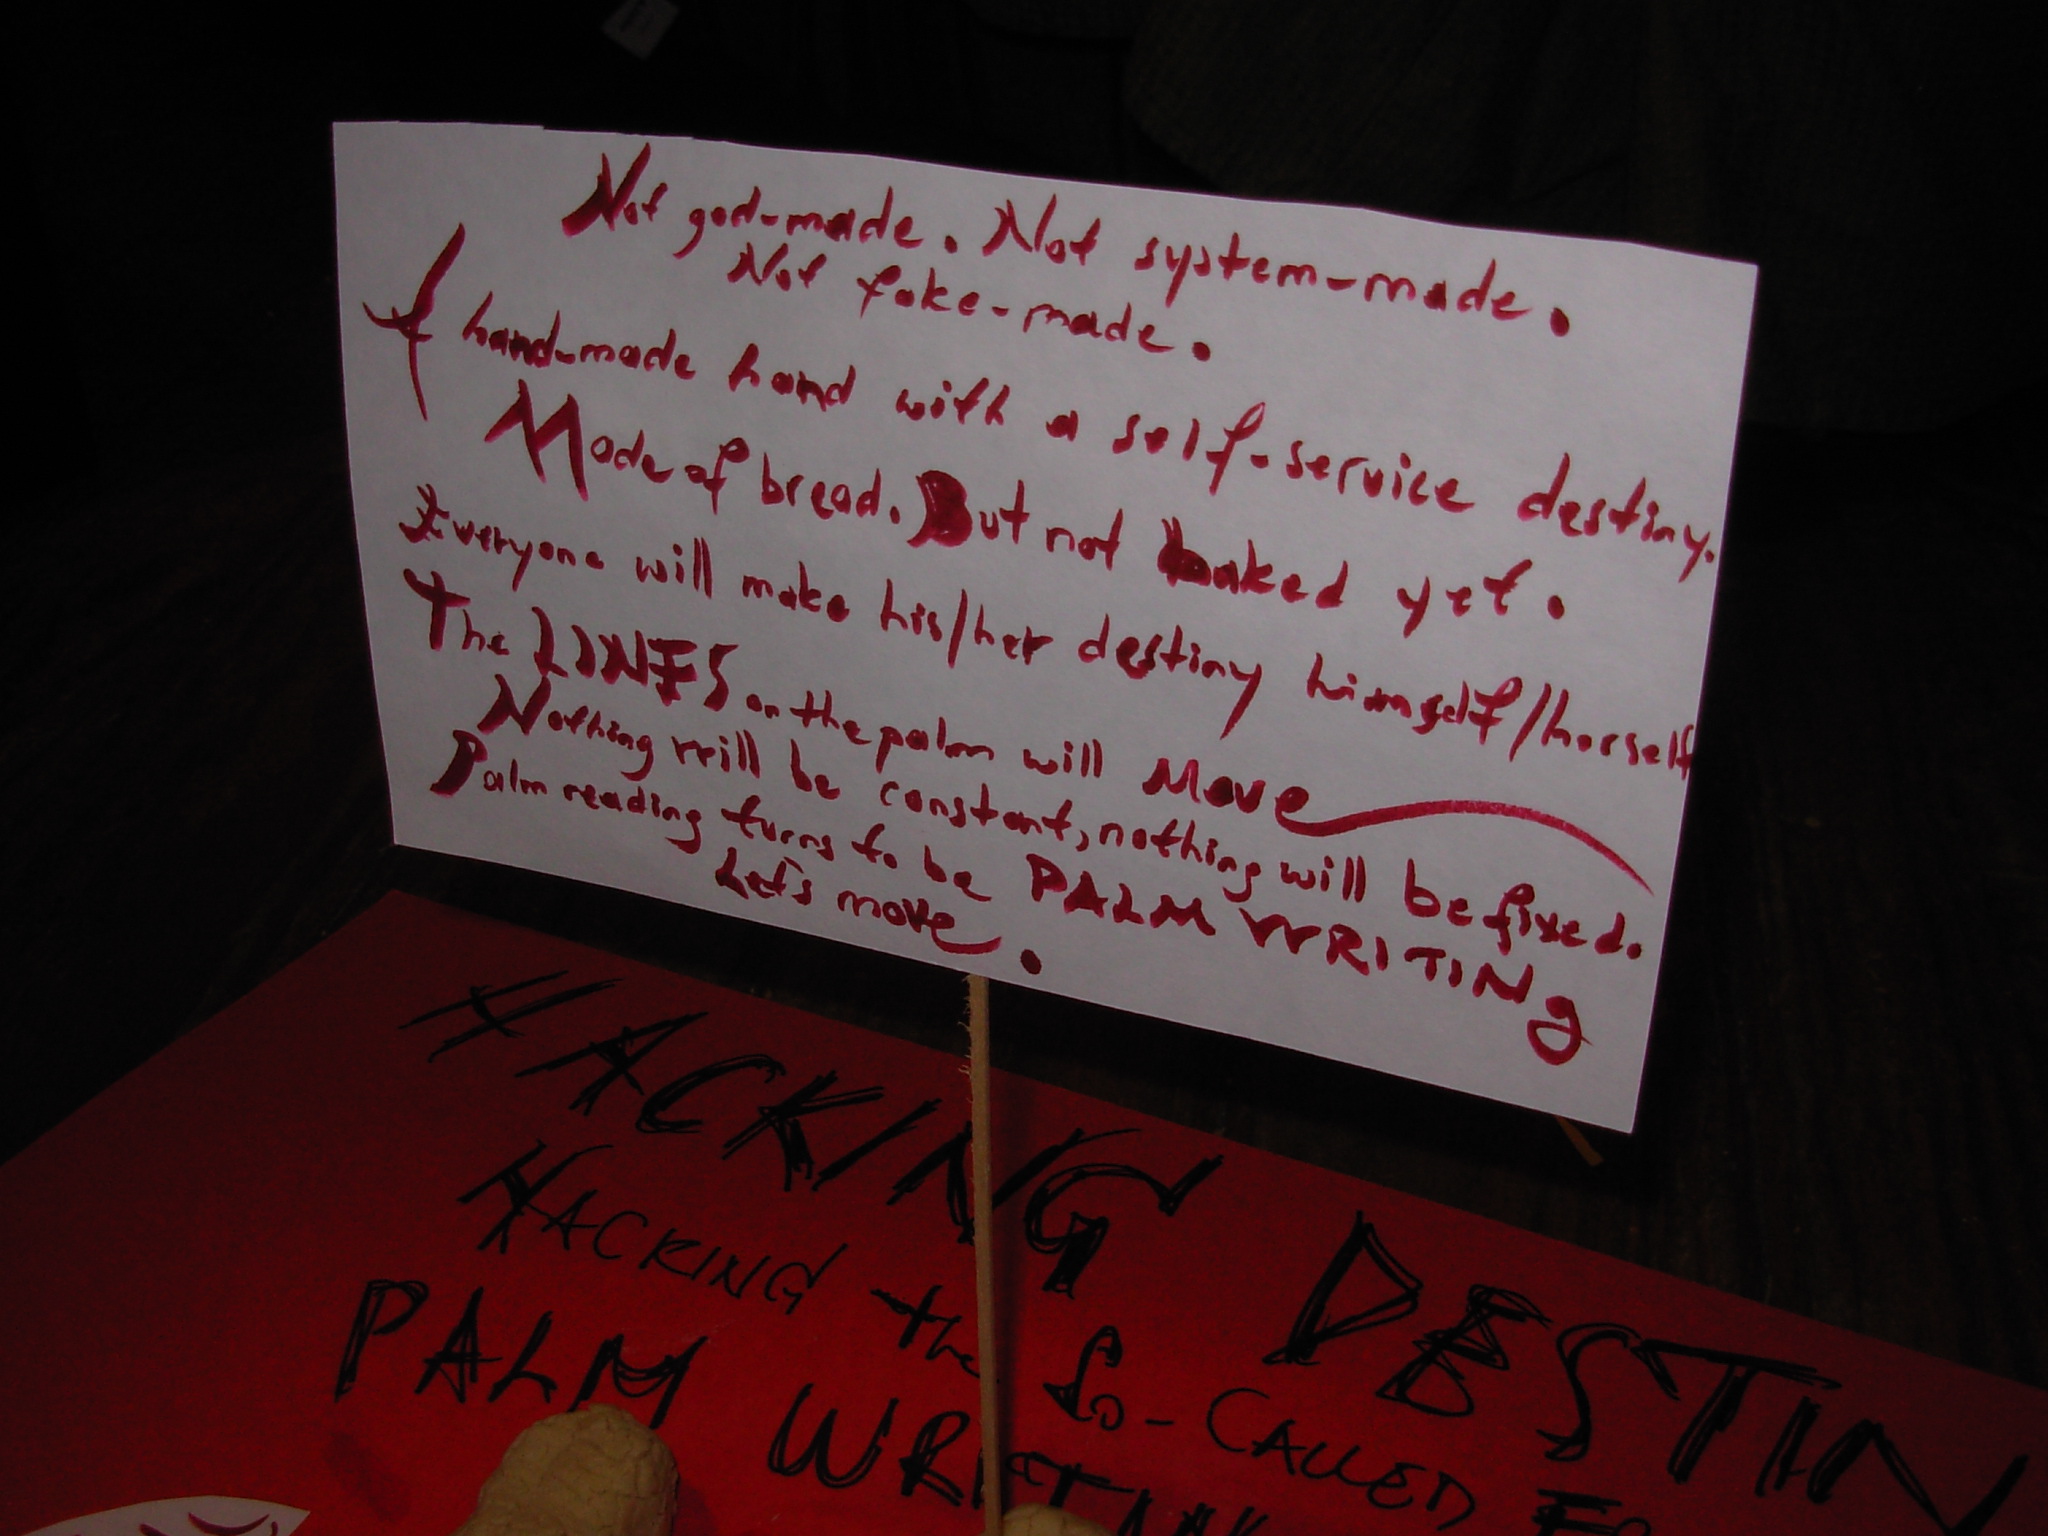 Not god-made. Not system-made.
Not fake-made.
A hand-made hand with a self-service destiny.
Made of bread. But not baked yet.
Everyone will make his/her destiny himself/herself
The LINES on the palm will Move
Nothing will be constant, nothing will be fixed.
Palm reading turns to be PALM WRITINg
Let's move.
HACKING DESTIN
HACKING the So-CALLED
PALM WRITIN